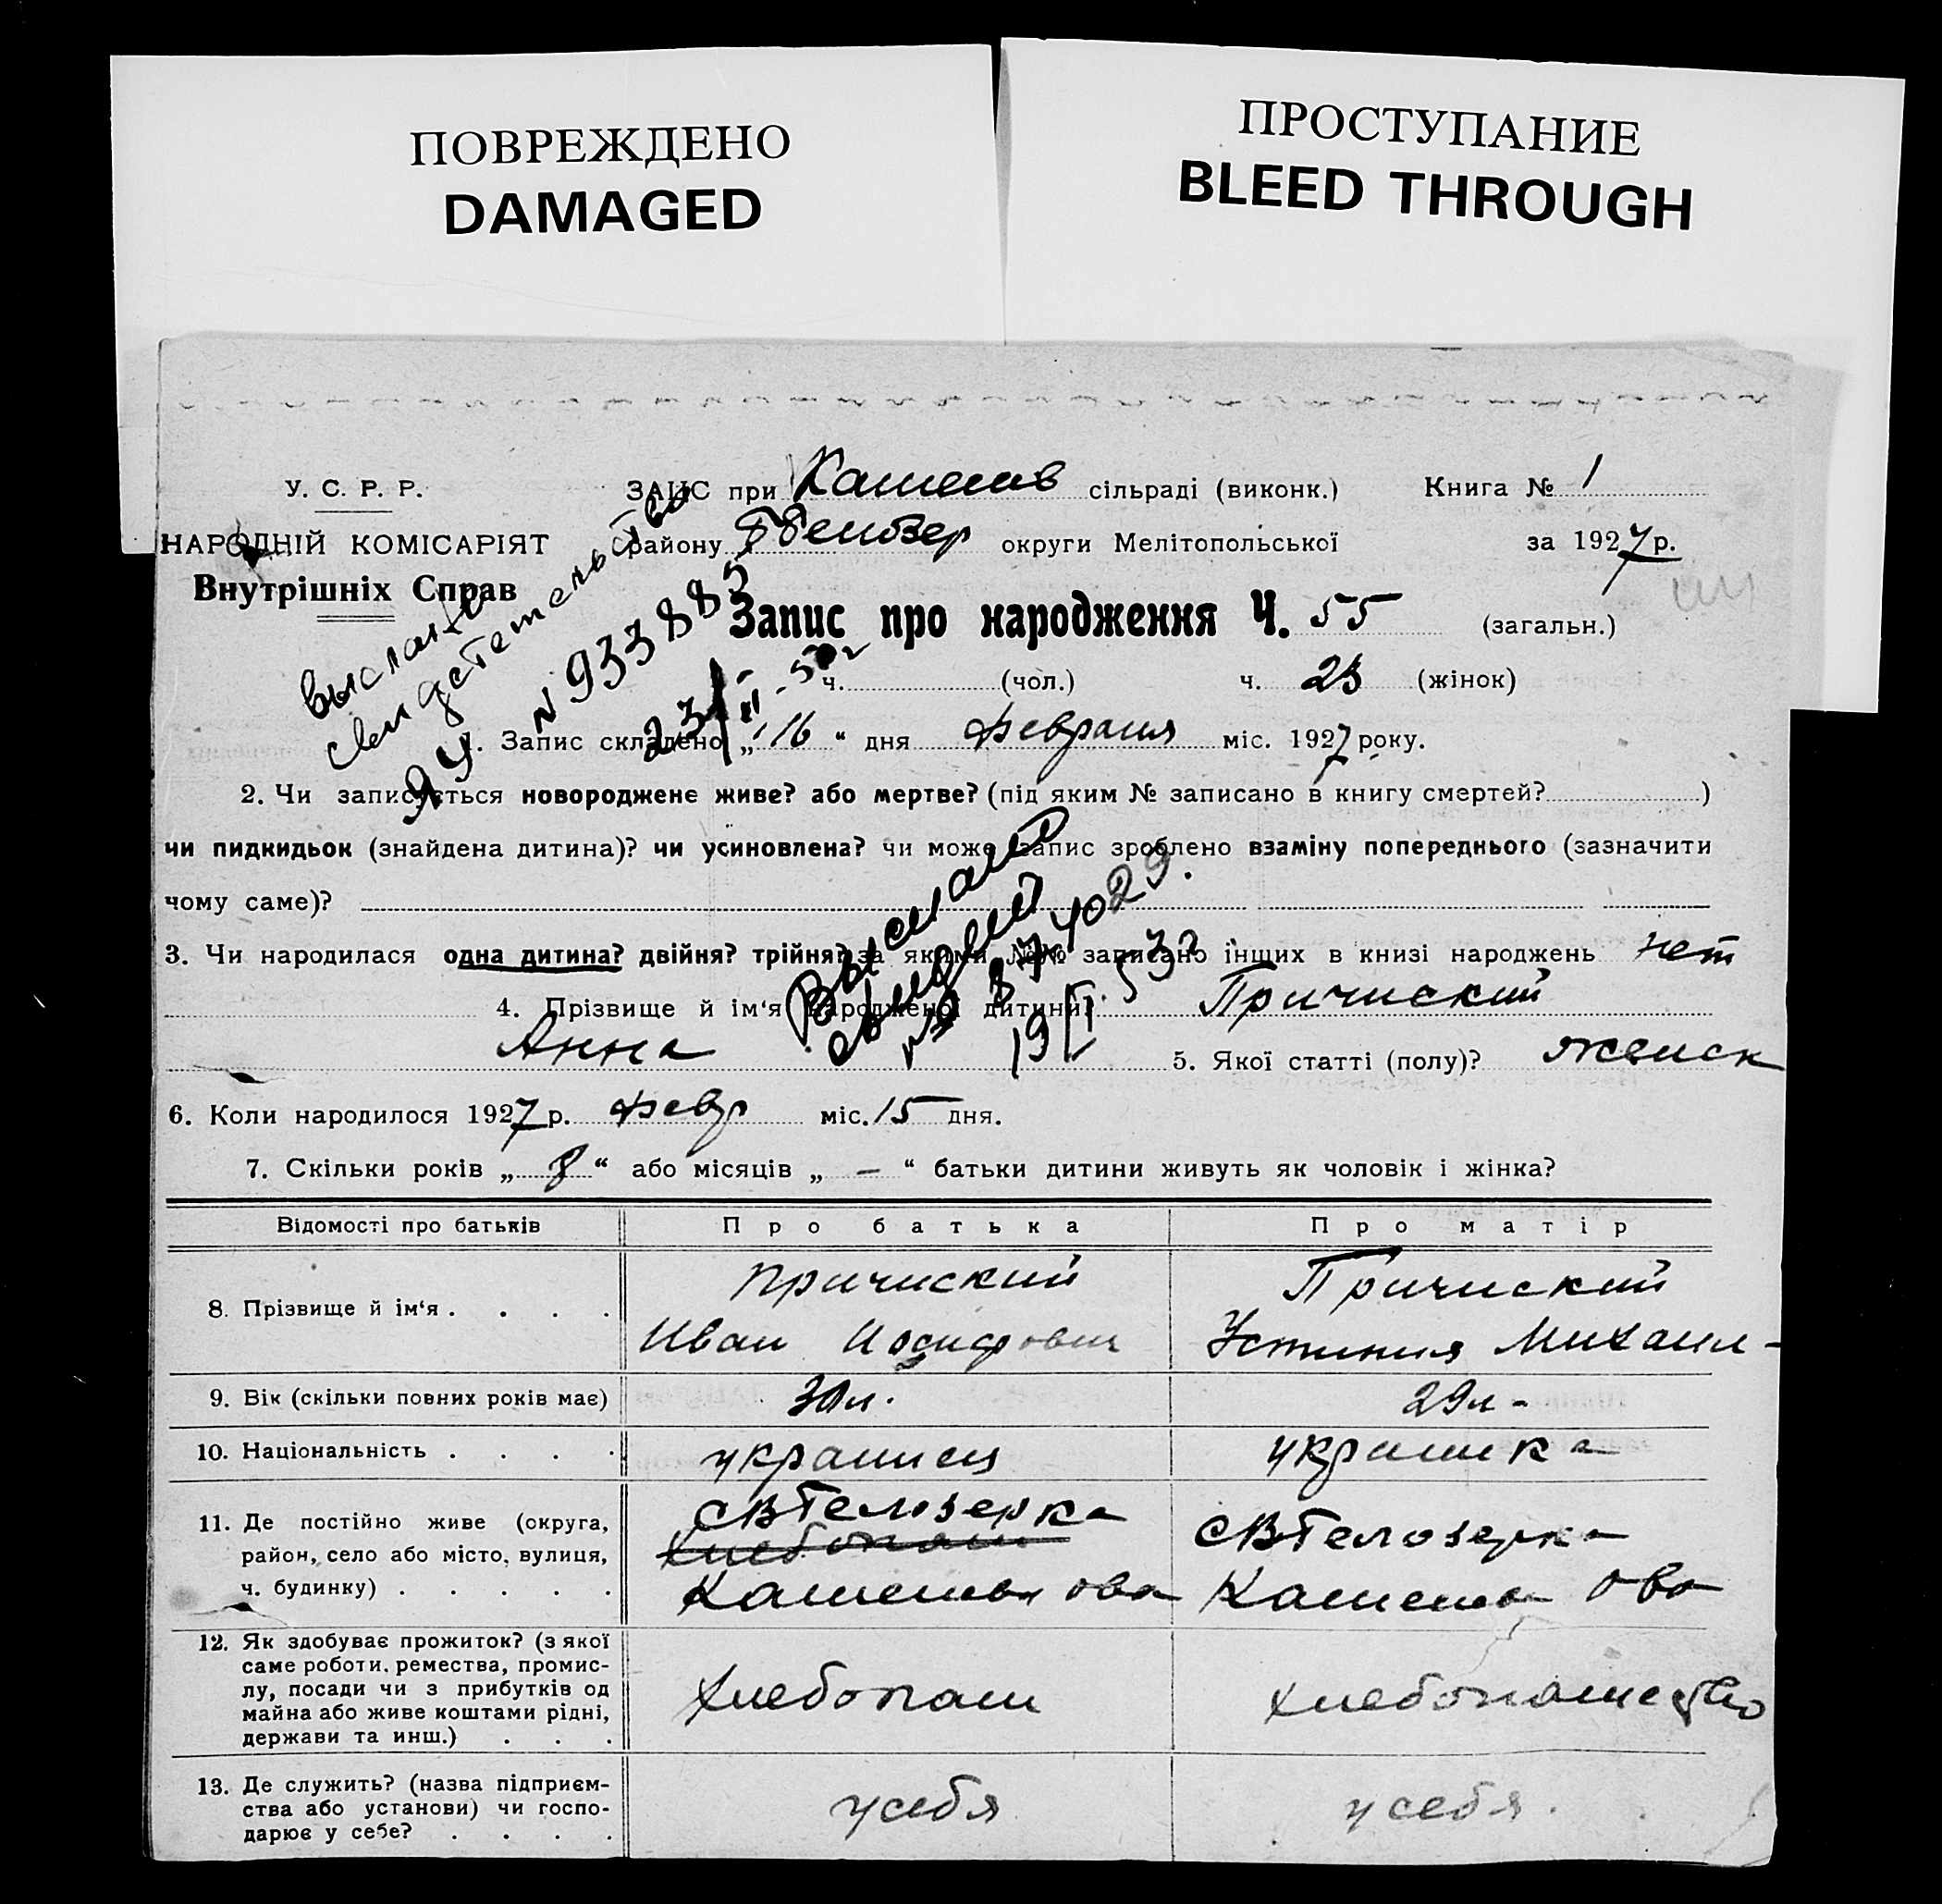 ПОВРЕЖДЕНО
DAMAGED
ПРОСТУПАНИЕ
BLEED THROUGH
У. С. Р. Р.
НАРОДНІЙ КОМІСАРІЯТ
Внутрішніх Справ
ЗАЦС при сільраді (виконк.) Книга № 1
району округи Мелітопольської за 1927 р.
Запис про народження Ч. 55 (загальн.)
ч. (чол.) ч. 23 (жінок)
выслано
свидетельство
ЯЧ N 933885
23/XI-52
1. Запис складено „16“ дня февраля міс. 1927 року.
2. Чи записується новороджене живе? або мертве? (під яким № записано в книгу смертей? )
чи пидкидьок (знайдена дитина)? чи усиновлена? чи може запис зроблено взаміну попереднього (зазначити
чому саме)?
3. Чи народилася одна дитина? двійня? трійня? за якими №№ записано інщих в книзі народжень нет
4. Прізвище й ім‘я народженої дитини
Анна 5. Якої статті (полу)? женск
6. Коли народилося 1927 р. Февр міс. 15 дня.
7. Скільки років „8“ або місяців „—“ батьки дитини живуть як чоловік і жінка?
Відомості про батьків Про батька Про матір
8. Прізвище й ім‘я . . . .
Иван Иосифович Устиния Михаил-
9. Вік (скільки повних років має) 30 л. 29 л-
10. Національність . . . . украинец украинка
11. Де постійно живе (округа,
район, село або місто, вулиця,
ч. будинку) . . . . .
12. Як здобуває прожиток? (з якої
саме роботи, ремества, промис-
лу, посади чи з прибутків од
майна або живе коштами рідні,
держави та инш.) . . .
хлебопаш хлебопашество
13. Де служить? (назва підприєм-
ства або установи) чи госпо-
дарює у себе? . . . .
у себя у себя.